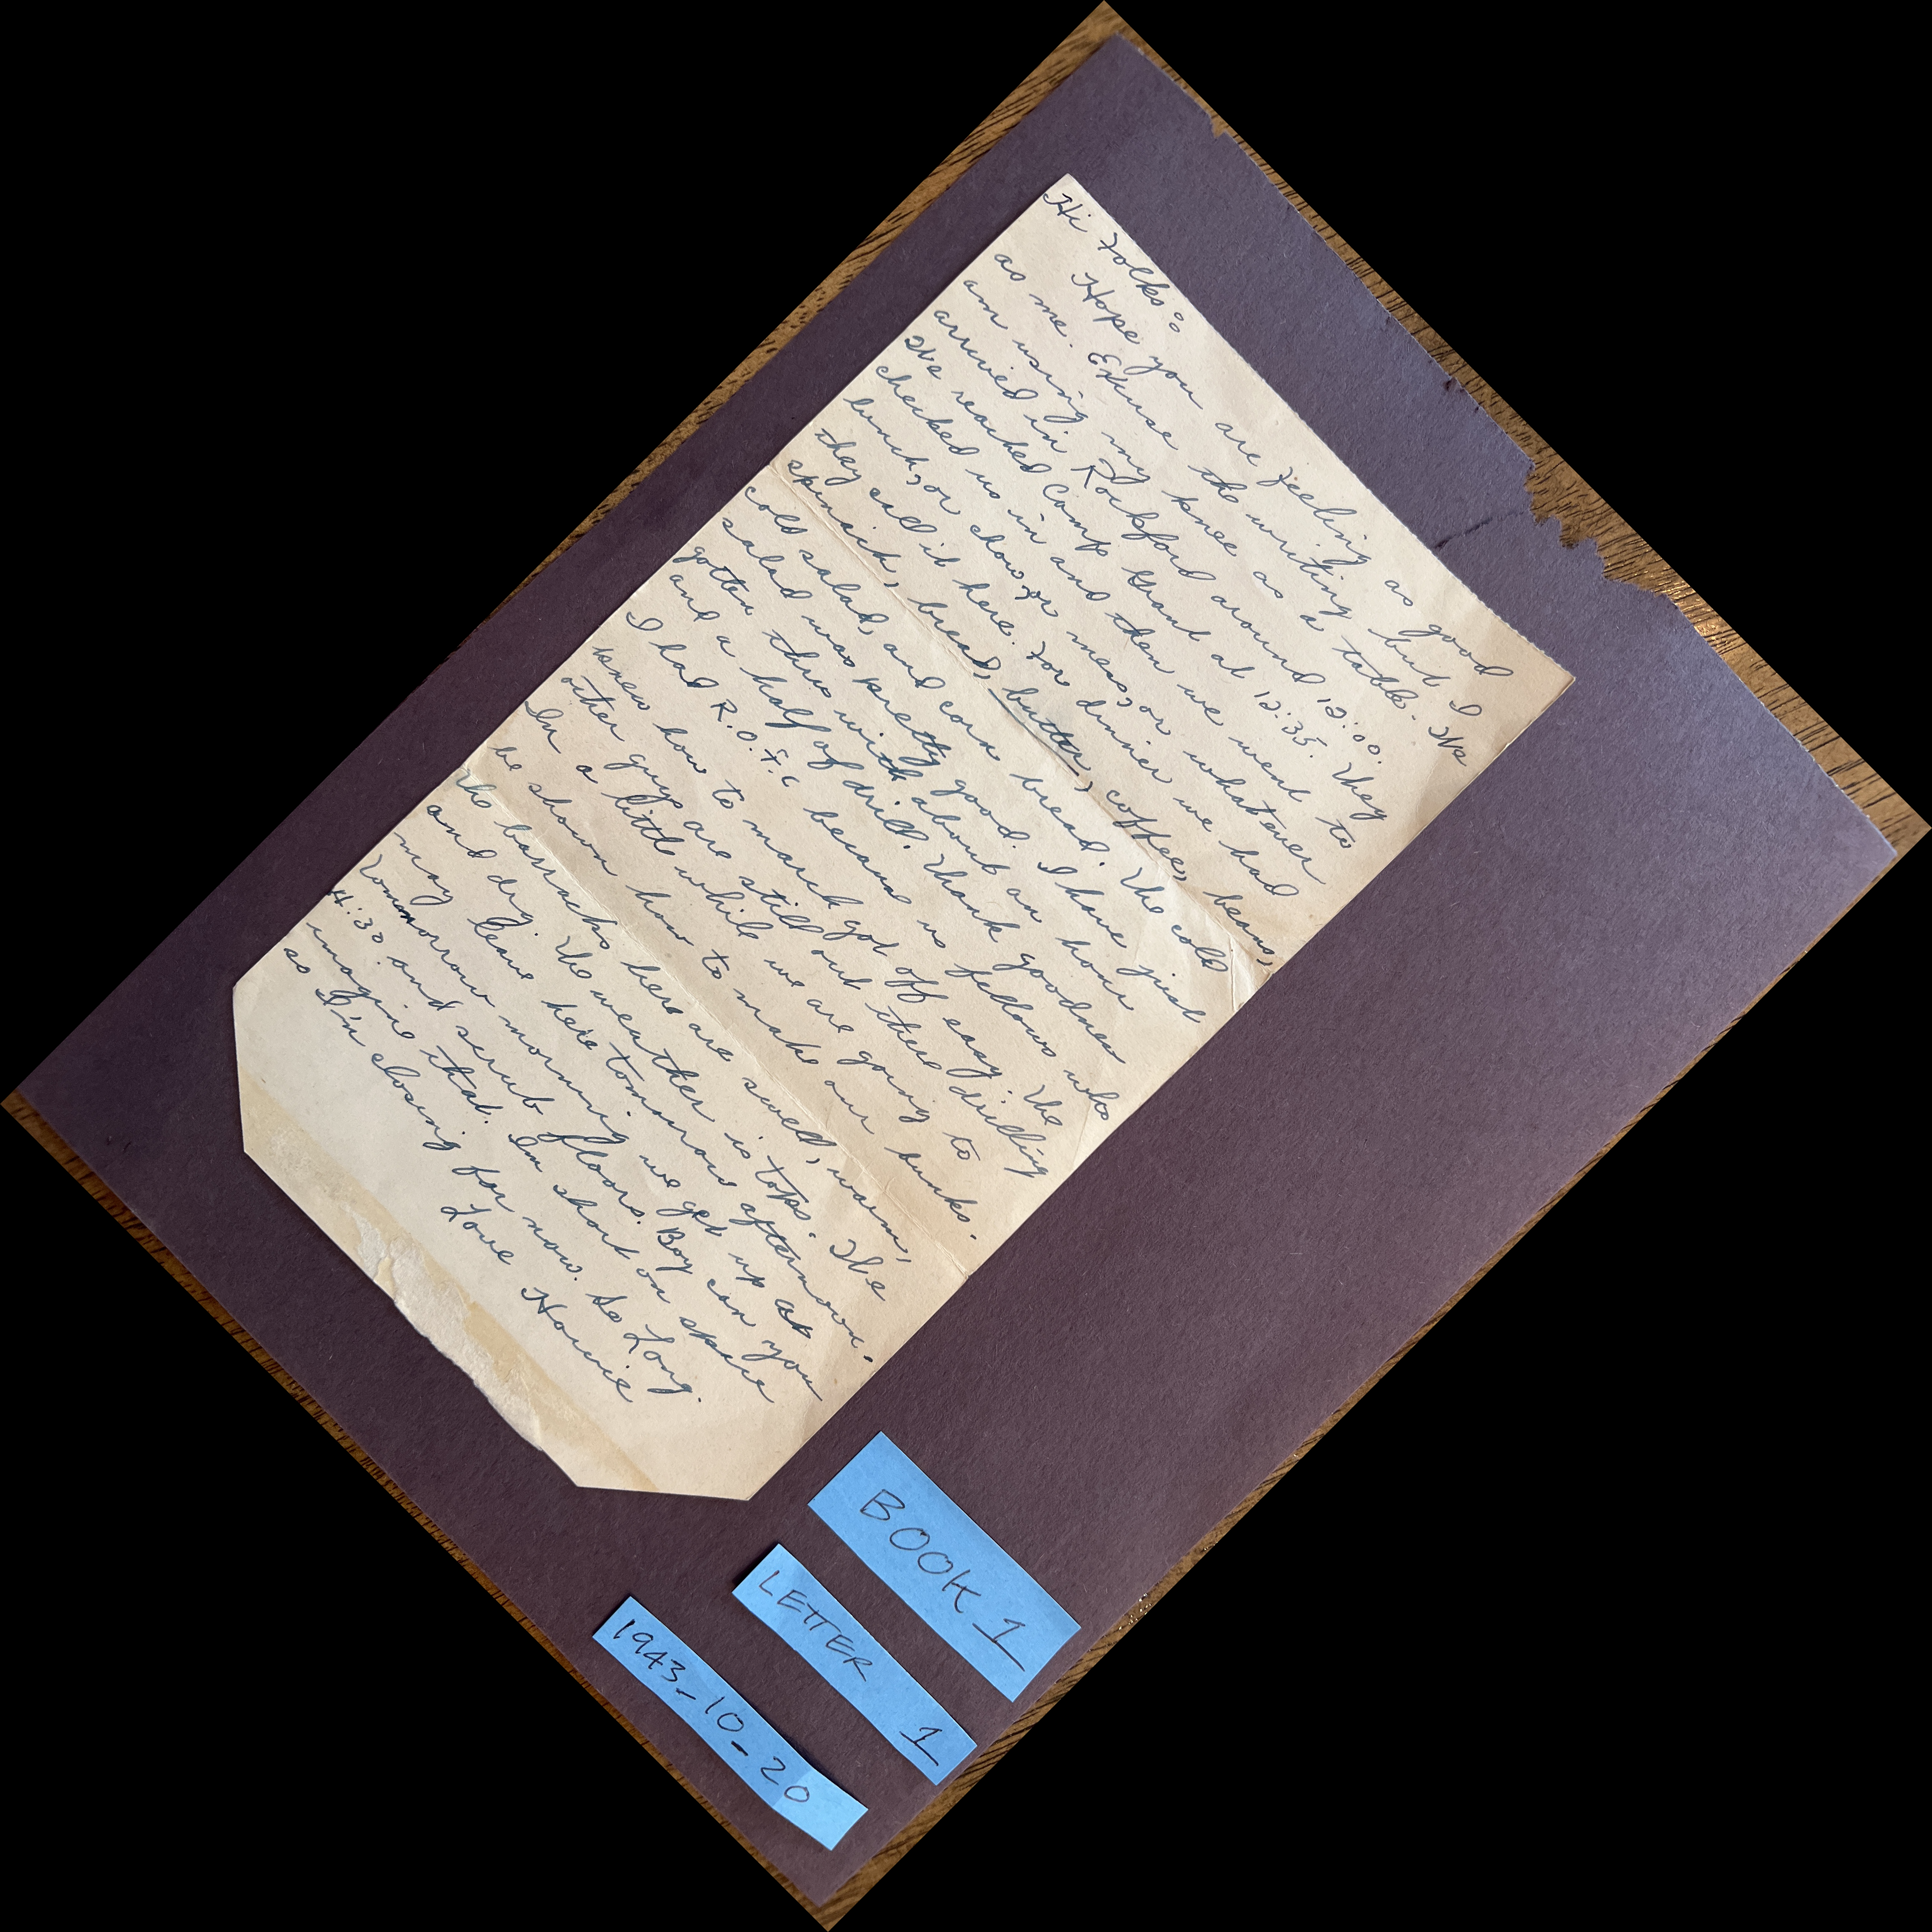 Hi Folks:
Hope you are feeling as good
as me. Excuse the writing but I
am using my knee as a table. We
arrived in Rockford around 12:00.
We reached Camp Grant at 12:35. They
checked us in and then we went to
lunch, or chow, or mess, or whatever
they call it here. For dinner we had
spinach, bread, butter, coffee, beans,
cold salad, and corn bread. The cold
salad was pretty good. I have just
gotten thru with about an hour
and a half of drill. Thank goodness
I had R.O.T.C because us fellows who
knew how to march got off easy. The
other guys are still out there drilling
In a little while we are going to
be shown how to make our bunks.
The barracks here are swell, warm,
and dry. The weather is tops. We
may leave here tomorrow afternoon.
Tommorrow morning we get up at
4:30 and scrub floors. Boy can you
imagine that. Im short on space
so I'm closing for now. So Long.
Love Howie
BOOK 1
LETTER 1
1943-10-20